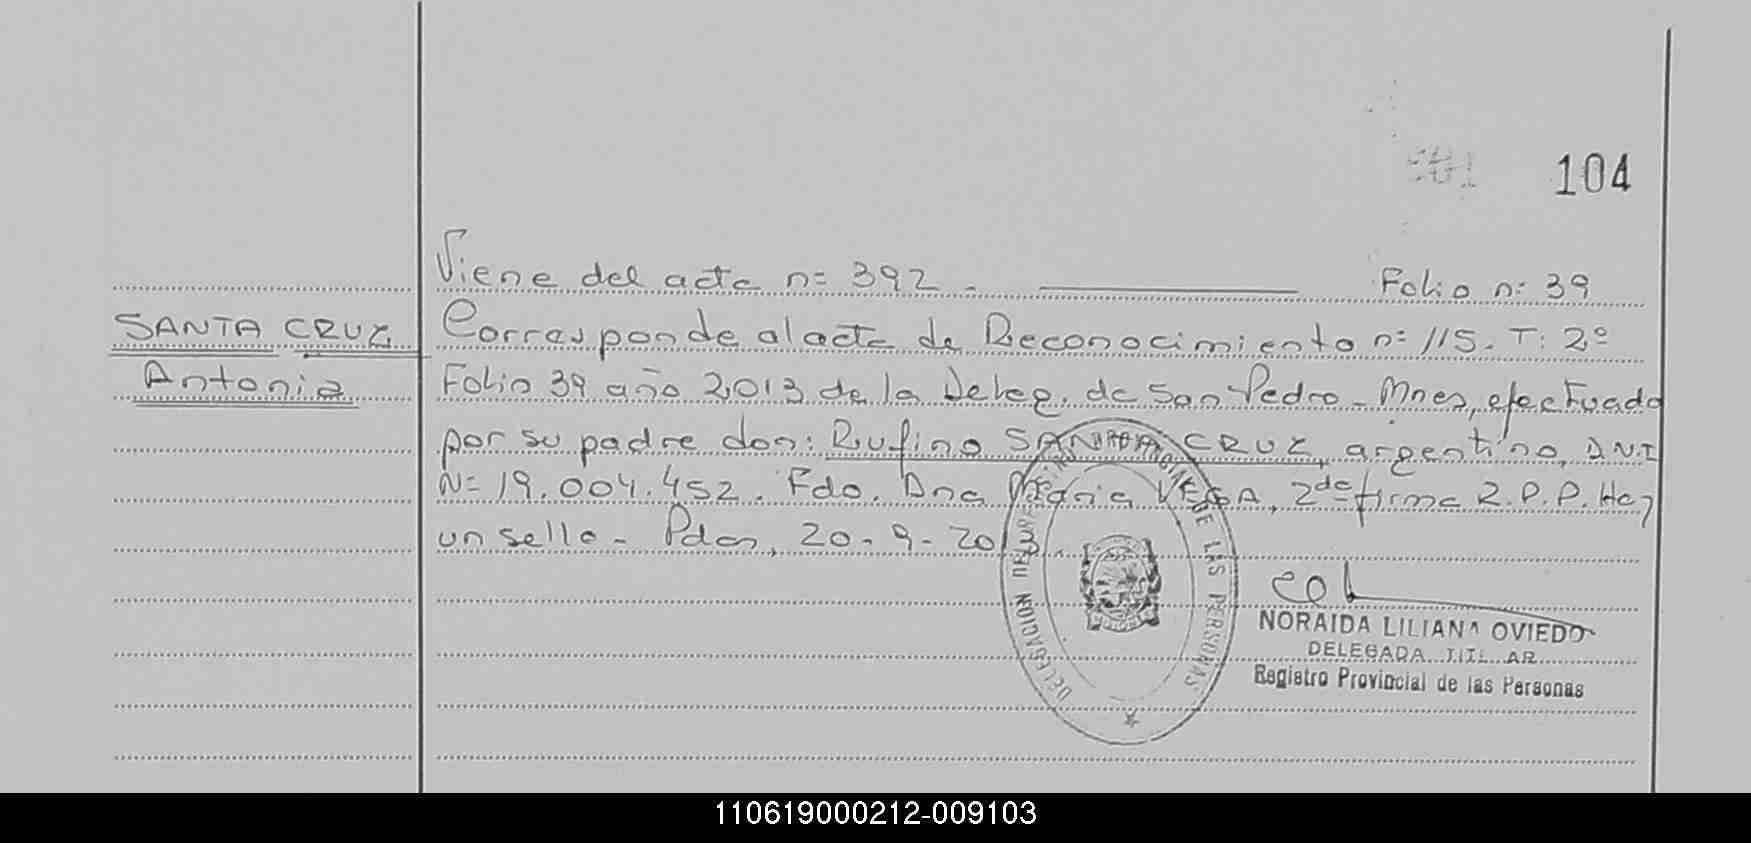 104
Viene del acta n: 392 - Folio n: 39
SANTA CRUZ Corresponde al acta de Reconocimiento n: 115. T: 2º
Antonia Folio 39 año 2.013 de la Deleg. de San Pedro - Mnes, efectuado
por su padre don: Rufino SANTA CRUZ, argentino, D.N.I
N: 19.004.452. Fdo. Dna Maria VEGA, 2da firma R.P.P. Hay
un sello - Pdas, 20-9-2013.
NORAIDA LILIANA OVIEDO
DELEGADA TITULAR
Registro Provincial de las Personas
DE LAS PERSONAS
DELEGACION
110619000212-009103